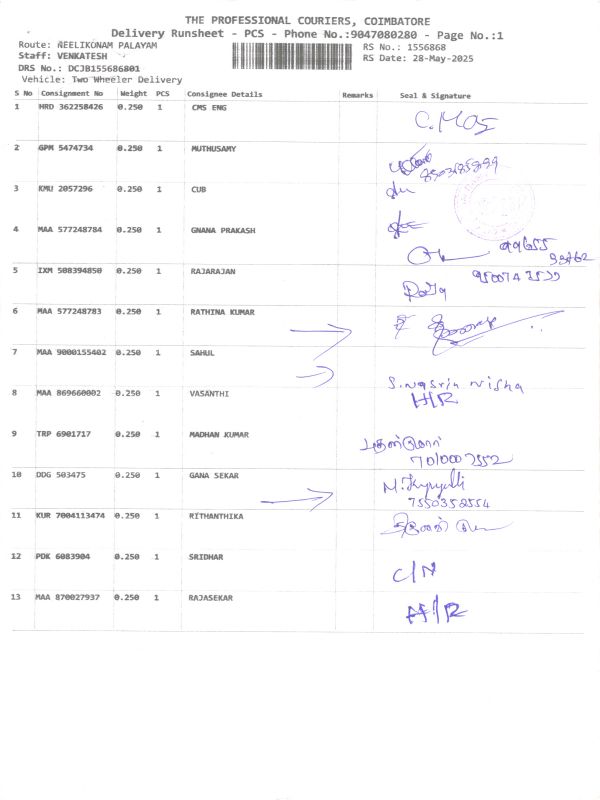 THE PROFESSIONAL COURIERS, COIMBATORE
Delivery Runsheet - PCS - Phone No.:9047080280 - Page No.:1
Route: NEELIKONAM PALAYAM
RS No.: 1556868
Staff: VENKATESH
RS Date: 28-May-2025
DRS No.: DCJB155686801
Vehicle: Two Wheeler Delivery
S No Consignment No Weight PCS Consignee Details Remarks Seal & Signature
1 HRD 362258426 0.250 1 CMS ENG
2 GPM 5474734 0.250 1 MUTHUSAMY
8503185899
3 KMU 2057296 0.250 1 CUB
4 MAA 577248784 0.250 1 GNANA PRAKASH
99655
93762
5 IXM 508394850 0.250 1 RAJARAJAN
Raja
6 MAA 577248783 0.250 1 RATHINA KUMAR
7 MAA 9000155402 0.250 1 SAHUL
S. Nasrin Nisha
8 MAA 869660002 0.250 1 VASANTHI H/R
9 TRP 6901717 0.250 1 MADHAN KUMAR
7010007552
10 DDG 503475 0.250 1 GANA SEKAR
7550352554
11 KUR 7004113474 0.250 1 RITHANTHIKA
12 PDK 6083904 0.250 1 SRIDHAR C/N
13 MAA 870027937 0.250 1 RAJASEKAR H/R